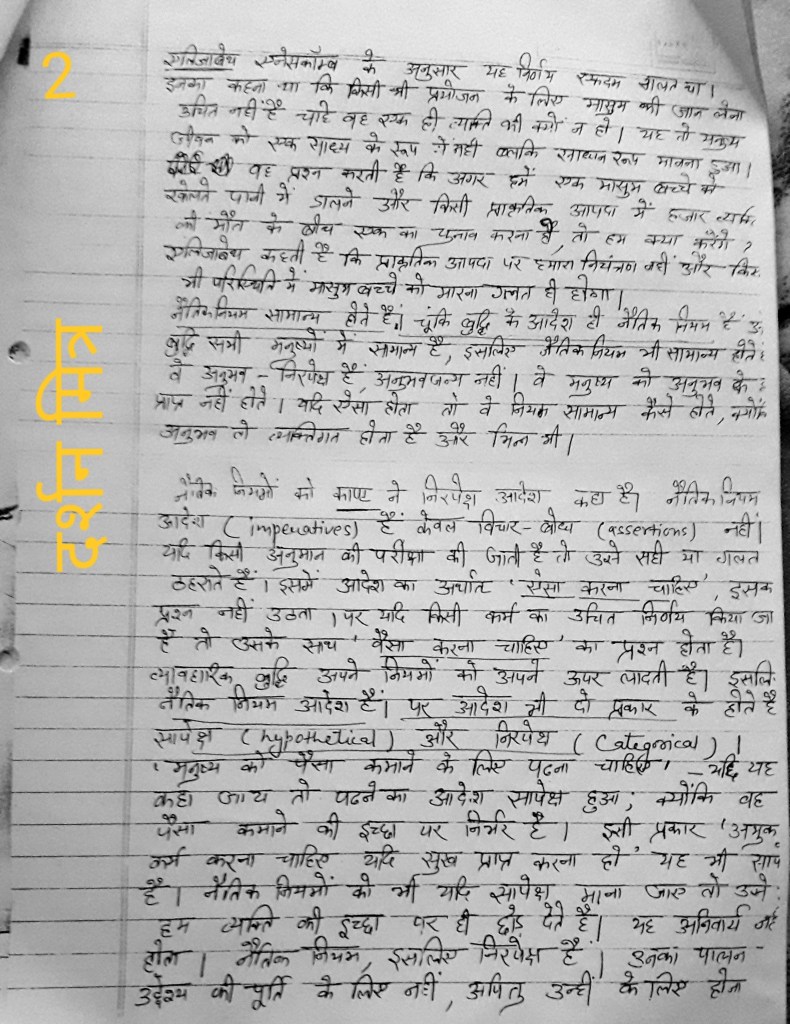 2
दर्शन मित्र
एलिजाबेथ एन्सकॉम्ब के अनुसार यह निर्णय एकदम गलत था।
इनका कहना था कि किसी भी प्रयोजन के लिए मासूम की जान लेना
उचित नहीं है चाहे वह एक ही व्यक्ति की क्यों न हो। यह तो मनुष्य
जीवन को एक साध्य के रूप में नही बल्कि साधन रूप मानना हुआ।
वह प्रश्न करती है कि अगर हमें एक मासूम बच्चे को
खोलते पानी में डालने और किसी प्राकृतिक आपदा में हजार
की मौत के बीच एक का चुनाव करना है, तो हम क्या करेंगे?
एलिजाबेथ कहती है कि प्राकृतिक आपदा पर हमारा नियंत्रण नहीं और
भी परिस्थिति में मासूम बच्चे को मारना गलत ही होगा।
नैतिक नियम सामान्य होते हैं। चूंकि बुद्धि के आदेश ही नैतिक नियम हैं
बुद्धि सभी मनुष्यों में सामान्य है, इसलिए नैतिक नियम भी सामान्य होते
वे अनुभव-निरपेक्ष हैं, अनुभवजन्य नहीं। वे मनुष्य को अनुभव के
प्राप्त नहीं होते। यदि ऐसा होता तो वे नियम सामान्य कैसे होते, क्योंकि
अनुभव तो व्यक्तिगत होता है और भिन्न भी।
नैतिक नियमों को काण्ट ने निरपेक्ष आदेश कहा है। नैतिक नियम
आदेश (imperatives) हैं केवल विचार-बोध्य (assertions) नहीं।
यदि किसी अनुमान की परीक्षा की जाती है तो उसे सही या गलत
ठहराते हैं। इसमें आदेश का अर्थात 'ऐसा करना चाहिए', इसका
प्रश्न नहीं उठता। पर यदि किसी कर्म का उचित निर्णय किया जा
है तो उसके साथ 'वैसा करना चाहिए' का प्रश्न होता है।
व्यावहारिक बुद्धि अपने नियमों को अपने ऊपर लादती है। इसलि
नैतिक नियम आदेश हैं। पर आदेश भी दो प्रकार के होते है
सापेक्ष (hypothetical) और निरपेक्ष (Categorical)।
'मनुष्य को पैसा कमाने के लिए पढना चाहिए' - यदि यह
कहा जाय तो पढने का आदेश सापेक्ष हुआ; क्योंकि वह
पैसा कमाने की इच्छा पर निर्भर है। इसी प्रकार 'अमुक
कर्म करना चाहिए यदि सुख प्राप्त करना हो' यह भी साप
है। नैतिक नियमों को भी यदि सापेक्ष माना जाए तो उसे
हम व्यक्ति की इच्छा पर ही छोड देते है। यह अनिवार्य नहीं
होता। नैतिक नियम, इसलिए निरपेक्ष हैं। उनका पालन
उद्देश्य की पूर्ति के लिए नहीं, अपितु उन्हीं के लिए होना